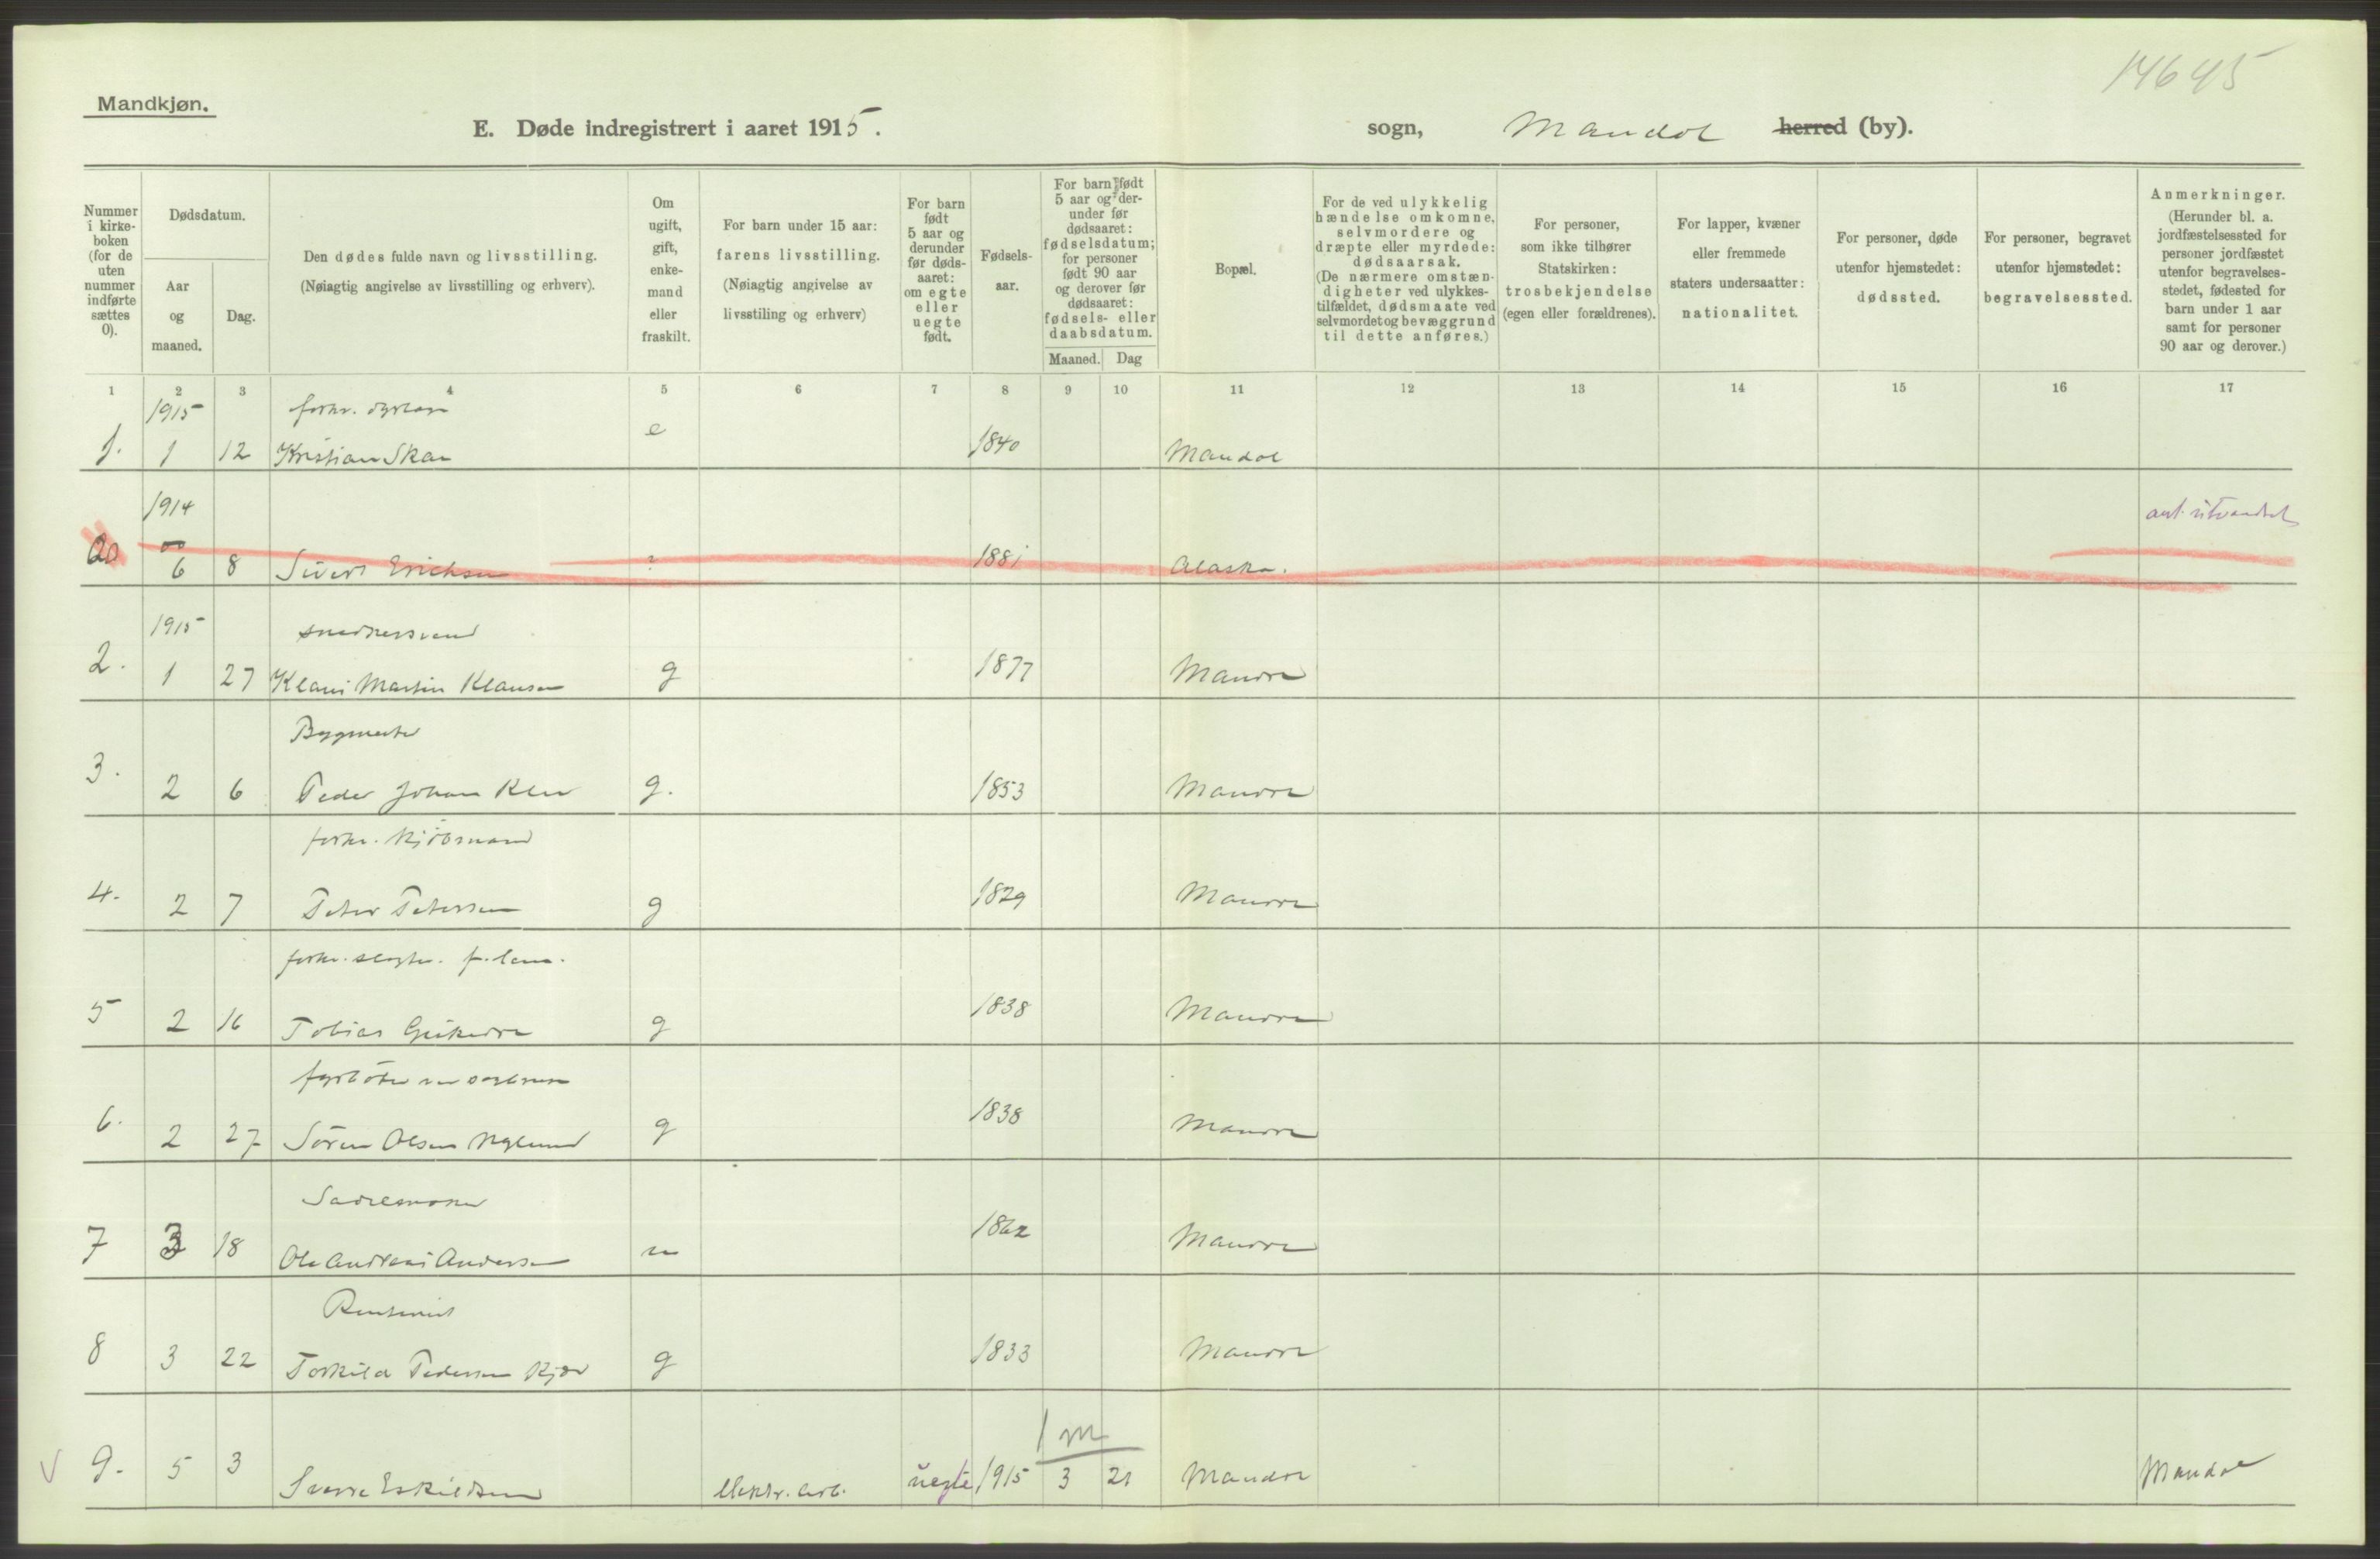 14645
Mandkjøn.
E. Døde indregistrert i aaret 1915.
sogn, Mandal herred (by).
Nummer i kirkeboken (for de uten nummer indførte sættes 0).
Dødsdatum.
Aar og maaned.
Dag.
Den dødes fulde navn og livsstilling.
(Nøiagtig angivelse av livsstilling og erhverv).
Om ugift, gift, enkemand eller fraskilt.
For barn under 15 aar: farens livsstilling.
(Nøiagtig angivelse av livsstiling og erhverv)
For barn født 5 aar og derunder før dødsaaret: om egte eller uegte født.
Fødselsaar.
For barn født 5 aar og derunder før dødsaaret: fødselsdatum; for personer født 90 aar og derover før dødsaaret: fødsels- eller daabsdatum.
Maaned. Dag
Bopæl.
For de ved ulykkelig hændelse omkomne, selvmordere og dræpte eller myrdede: dødsaarsak.
(De nærmere omstændigheter ved ulykkestilfældet, dødsmaate ved selvmordet og bevæggrund til dette anføres.)
For personer, som ikke tilhører Statskirken: trosbekjendelse (egen eller forældrenes).
For lapper, kvæner eller fremmede staters undersaatter: nationalitet.
For personer, døde utenfor hjemstedet: dødssted.
For personer, begravet utenfor hjemstedet: begravelsessted.
Anmerkninger.
(Herunder bl. a. jordfæstelsessted for personer jordfæstet utenfor begravelsesstedet, fødested for barn under 1 aar samt for personer 90 aar og derover.)
1 2 3 4 5 6 7 8 9 10 11 12 13 14 15 16 17
1915 forhv.
1. 1 12 Kristian Skar e 1840 Mandal
1914
6 8 Sivert Erichsen ? 1881 Alaska.
1915 snedkersvend
2. 1 27 Klaus Martin Klausen g 1877 Mandal
Bygmester
3. 2 6 Peder Johan g. 1853 Mandal
forhv. kjøbmand
4. 2 7 Peter Petersen g 1829 Mandal
forhv.
5 2 16 Tobias g 1838 Mandal
fyrbøter
6. 2 27 Sören Olsen g 1838 Mandal
Sadlemaker
7 3 18 Ole Andreas Andersen u 1862 Mandal
Rentenist
8 3 22 Torkild Pedersen Kjær g 1833 Mandal
1 m
V 9. 5 3 Sverre Eskildsen elektr. arb. uegte 1915 3 21 Mandal Mandal